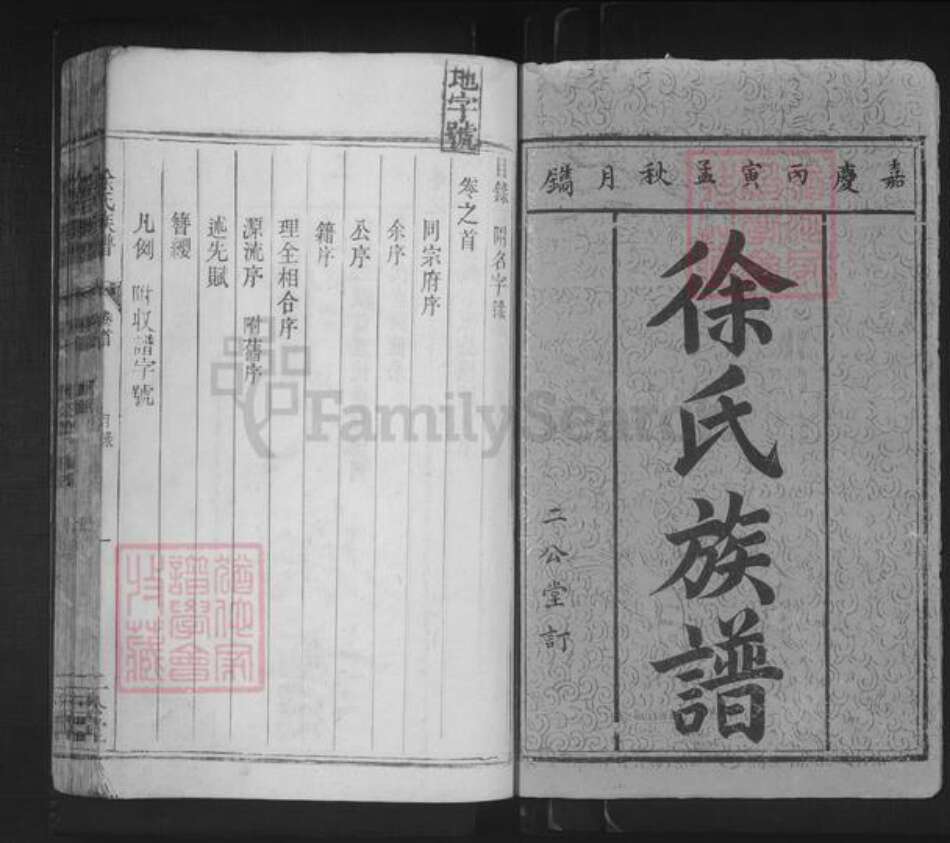 嘉慶丙寅孟秋月鐫
徐氏族譜
二公堂訂
地字號
目錄 附名字錄
卷之首
同宗府序
余序
公序
籍序
理全相合序
源流序 附舊序
述先賦
簪纓
凡例 附収譜字號
徐氏族譜
卷首
目錄
一
猶他家譜學會收藏
FamilySearch